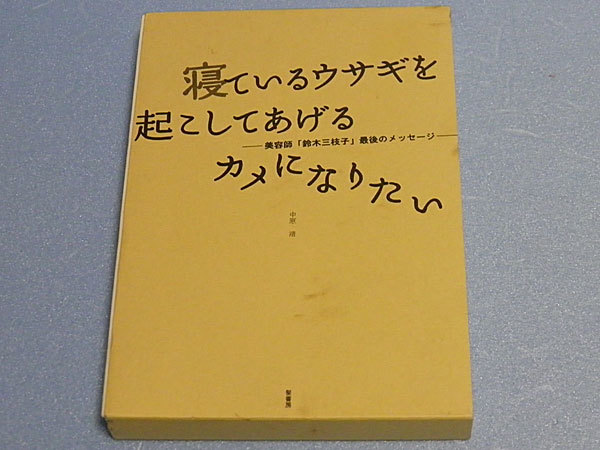 寝ているウサギを
起こしてあげる
――美容師「鈴木三枝子」最後のメッセージ――
カメになりたい
中原 靖
髪書房